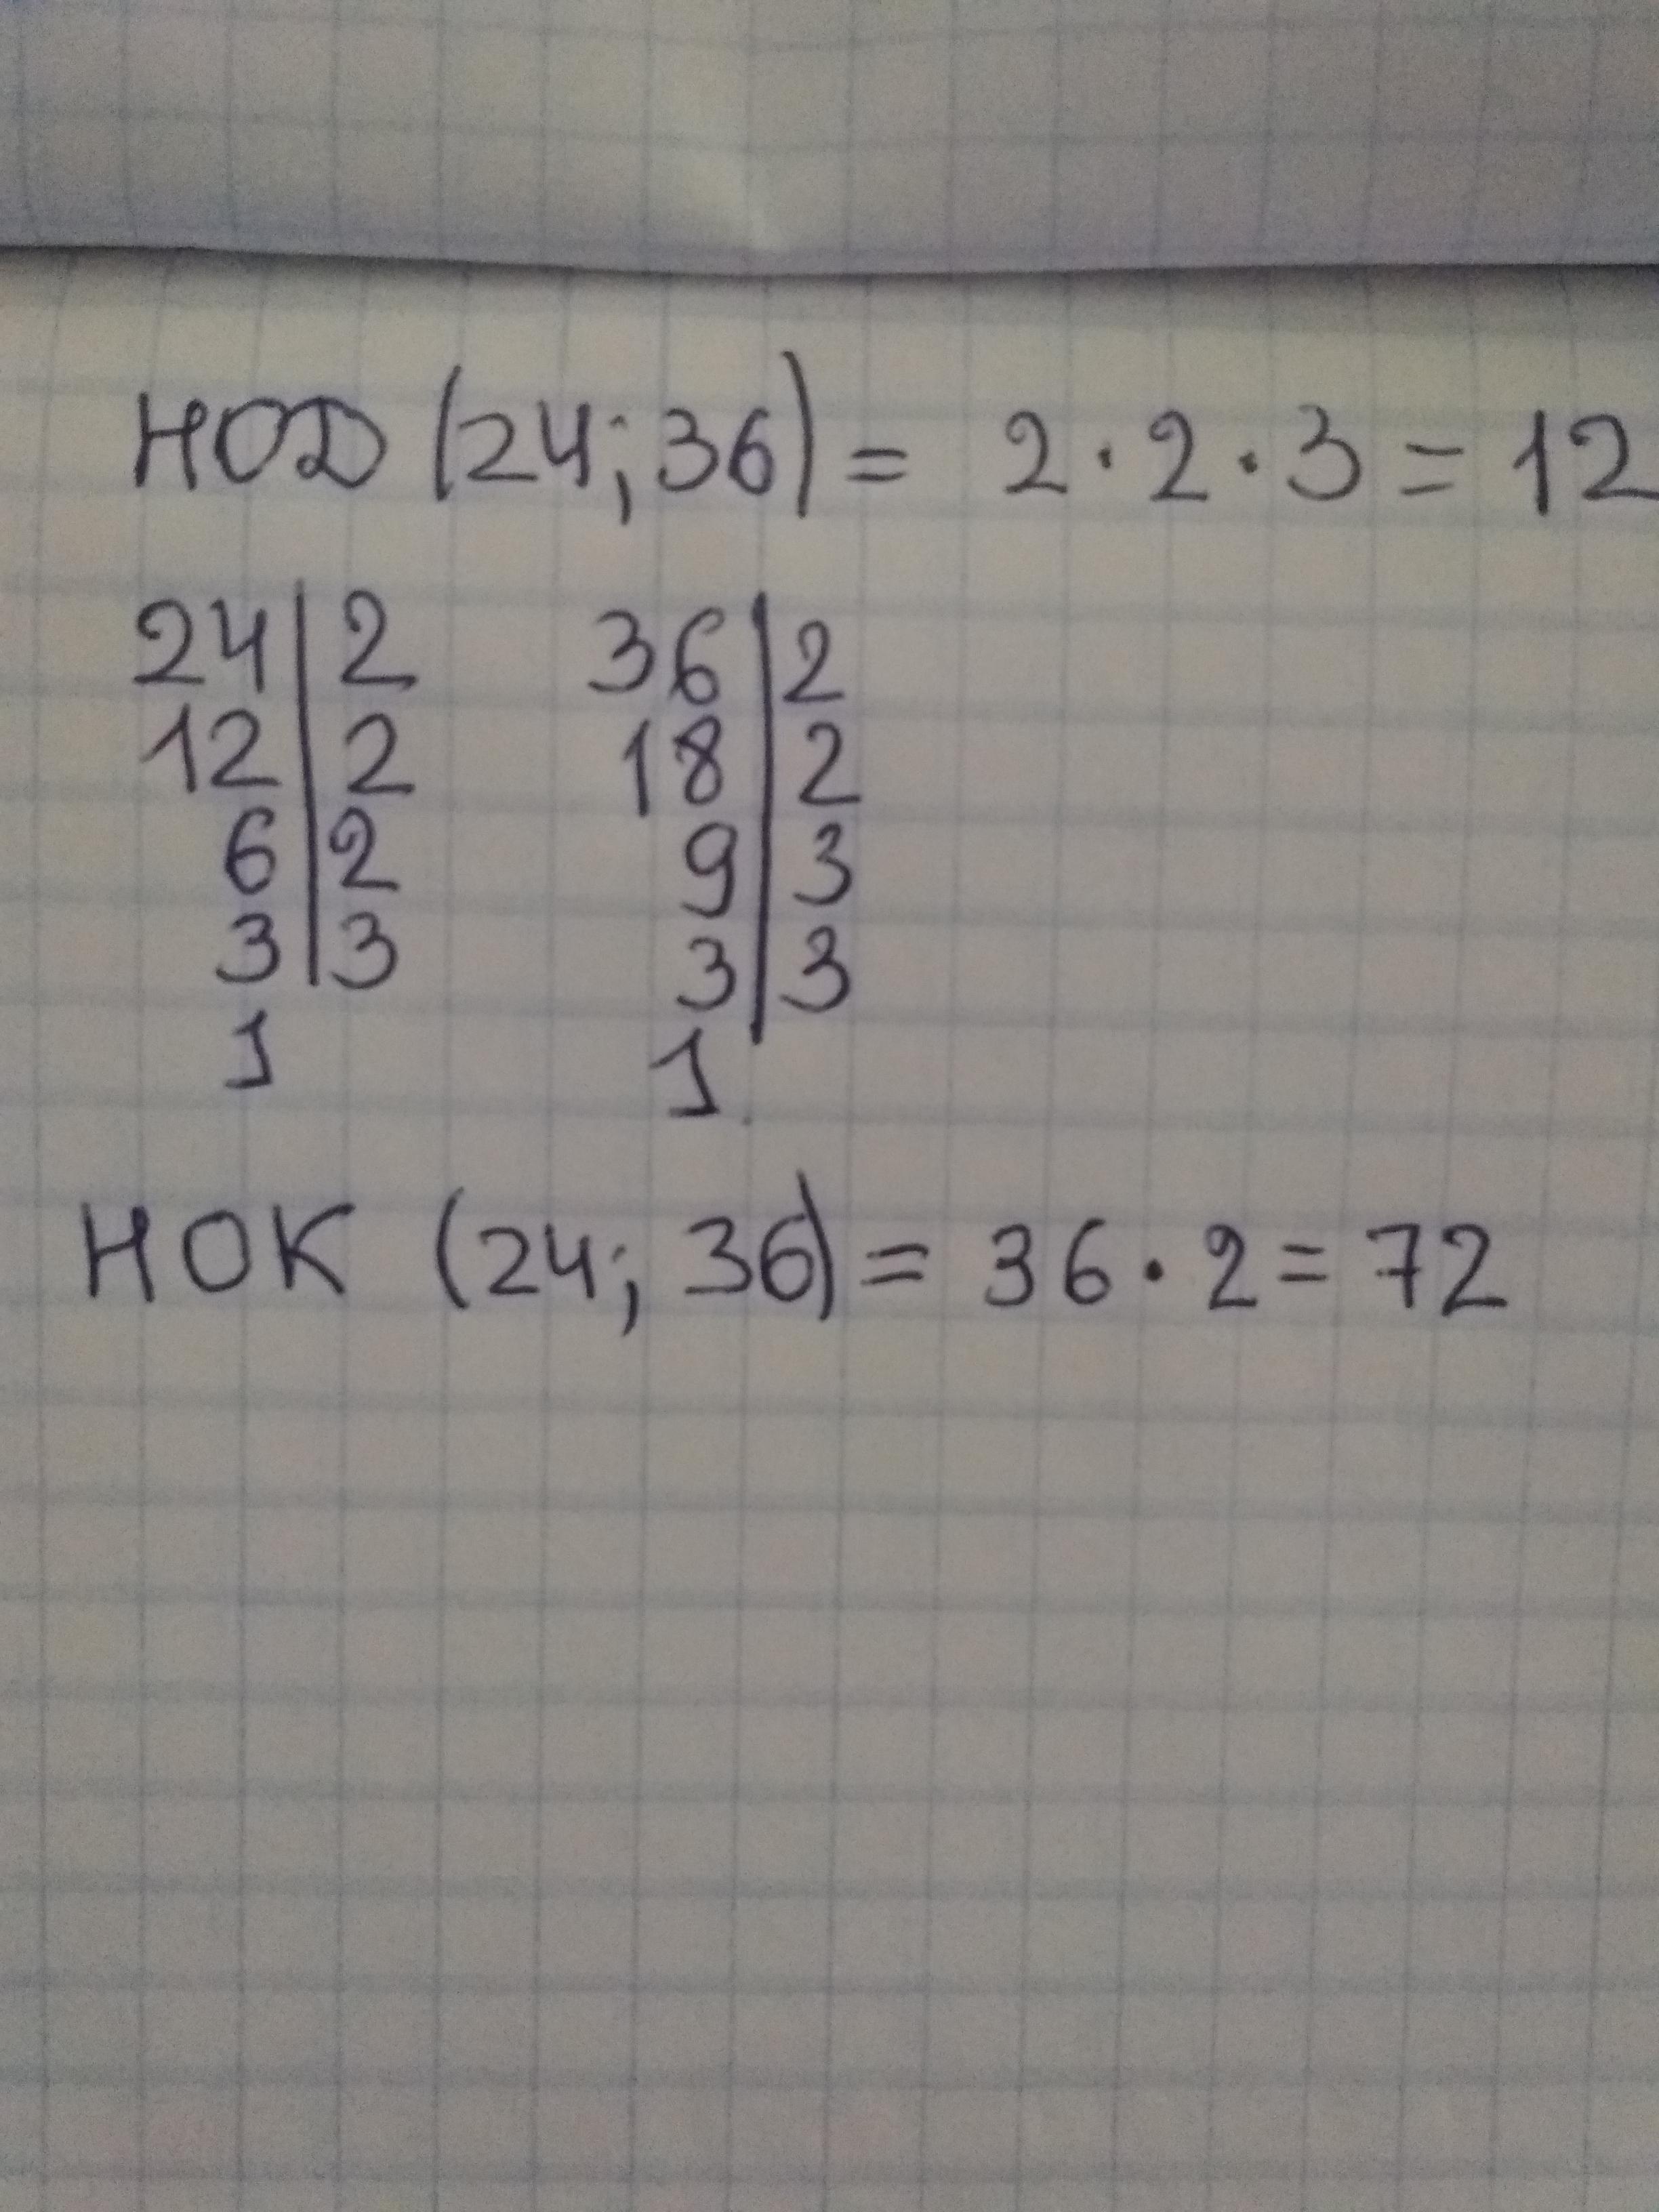 НОД (24; 36) = 2 · 2 · 3 = 12
24 | 2 36 | 2
12 | 2 18 | 2
6 | 2 9 | 3
3 | 3 3 | 3
1 1
НОК (24; 36) = 36 · 2 = 72